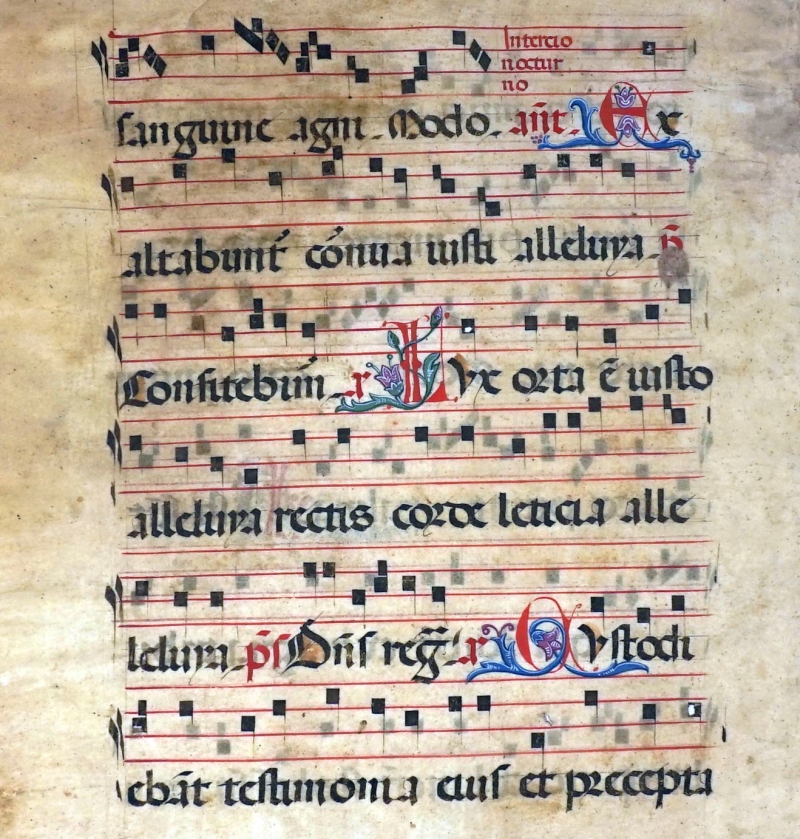 Intercio
noctur
no
sanguine agni. Modo. añt. Ex
altabunt̄ cōnua iusti alleluya. p̄
Confitebim̄. x Lyx orta ē iusto
alleluya rectis corde leticia alle
leluya. p̄s Dn̄s reḡ. x Cystodi
ebāt testimonia eius et precepta